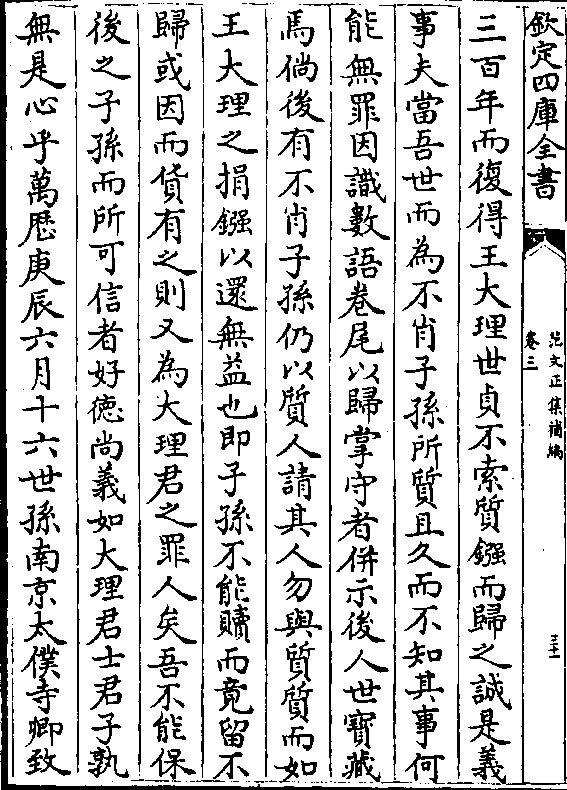 三百年而復得王大理世貞不索質鏹而歸之誠是義
事夫當吾世而為不肖子孫所質且久而不知其事何
能無罪因識數語卷尾以歸掌守者併示後人世寶藏
焉倘後有不肖子孫仍以質人請其人勿與質質而如
王大理之捐鏹以還無益也即子孫不能贖而竟留不
歸或因而貨有之則又為大理君之罪人矣吾不能保
後之子孫而所可信者好徳尚義如大理君士君子孰
無是心乎萬歴庚辰六月十六世孫南京太僕寺卿致
欽定四庫全書
范文正集補編
卷三
三十一